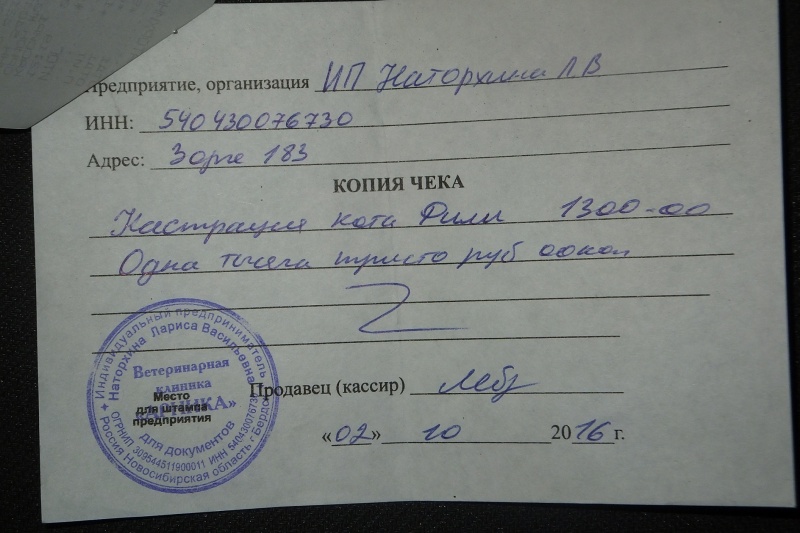 Предприятие, организация ИП Наторхина Л В
ИНН: 540430076730
Адрес: Зорге 183
КОПИЯ ЧЕКА
Кастрация кота Фили 1300-00
Одна тысяча триста руб 00коп
Продавец (кассир)
«02» 10 2016 г.
Индивидуальный предприниматель
Наторхина Лариса Васильевна
Ветеринарная
клиника
Место
для штампа
предприятия
для документов
ОГРНИП 309544511900011 ИНН 540430076730
Россия Новосибирская область г Бердск